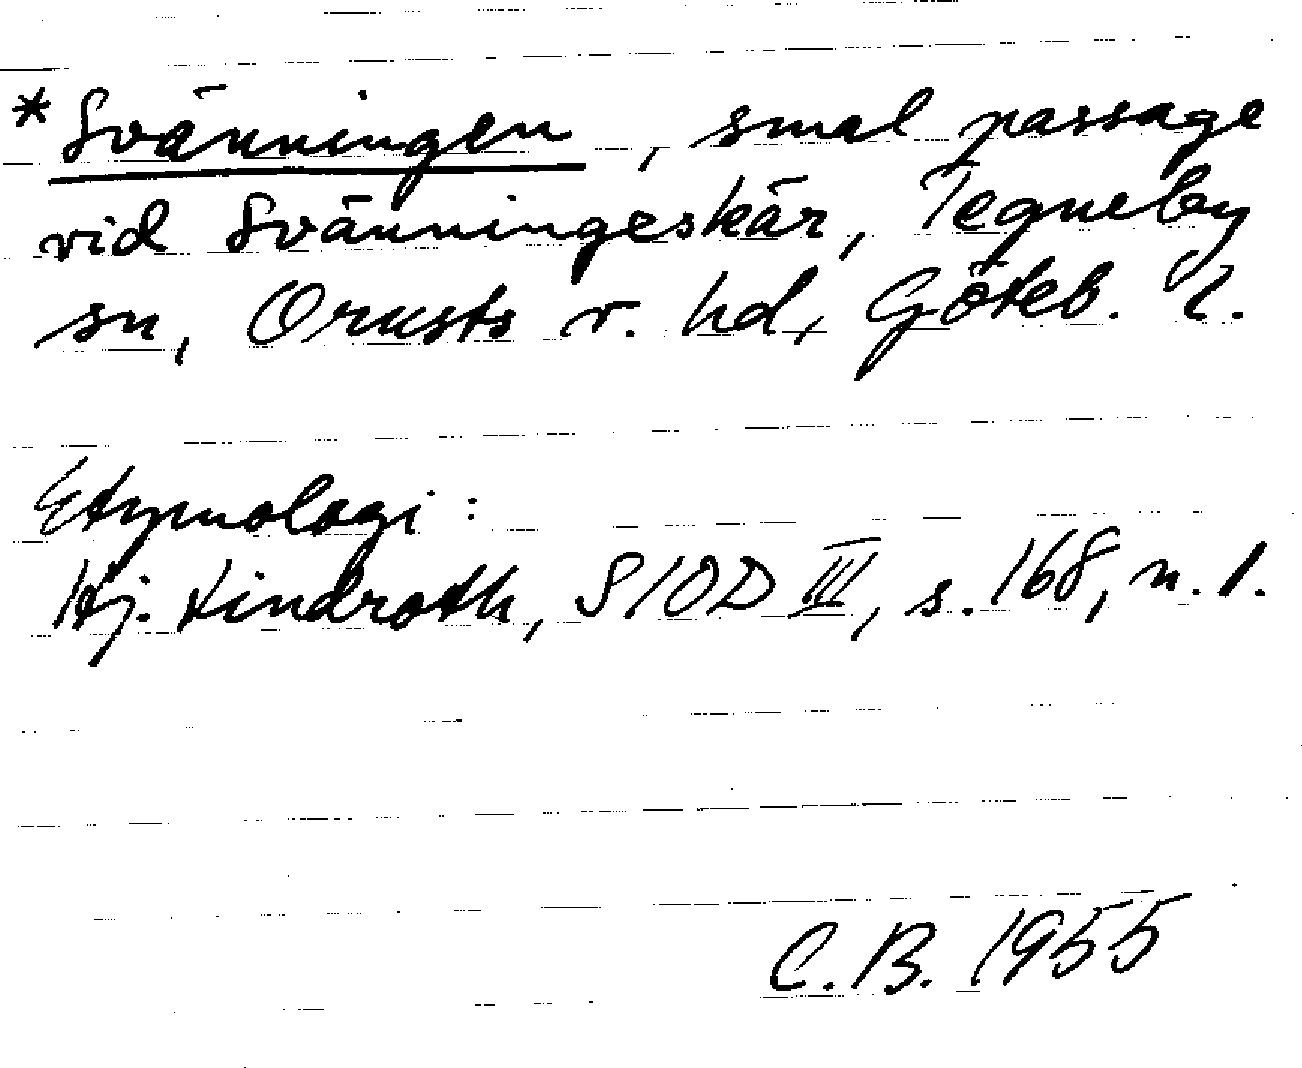 *Svänningen, smal passage
vid Svänningeskär, Tegneby
sn, Orusts v. hd, Göteb. l.
Etymologi:
Hj. Lindroth, SIOD III, s. 168, n. 1.
C.B. 1955